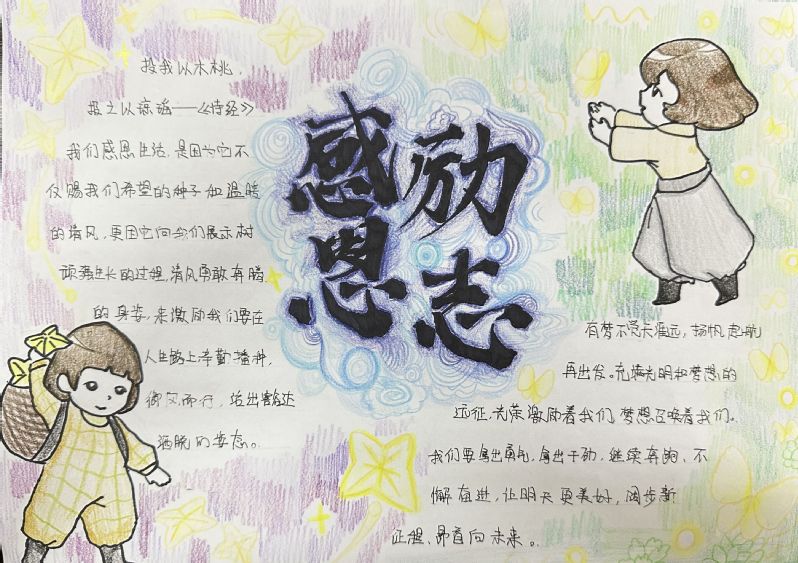 感恩
励志
投我以木桃,
报之以琼瑶——《诗经》
我们感恩生活,是因为它不
仅赐我们希望的种子和温暖
的清风,更因它向我们展示树
顽强生长的过程,清风勇敢奔腾
的身姿,来激励我们要在
人生路上辛勤播种,
御风而行,活出豁达
洒脱的姿态。
有梦不觉天涯远,扬帆起航
再出发。充满光明和梦想的
远征,光荣激励着我们,梦想召唤着我们。
我们要拿出勇气,拿出干劲,继续奔跑、不
懈奋进,让明天更美好,阔步新
征程、昂首向未来。